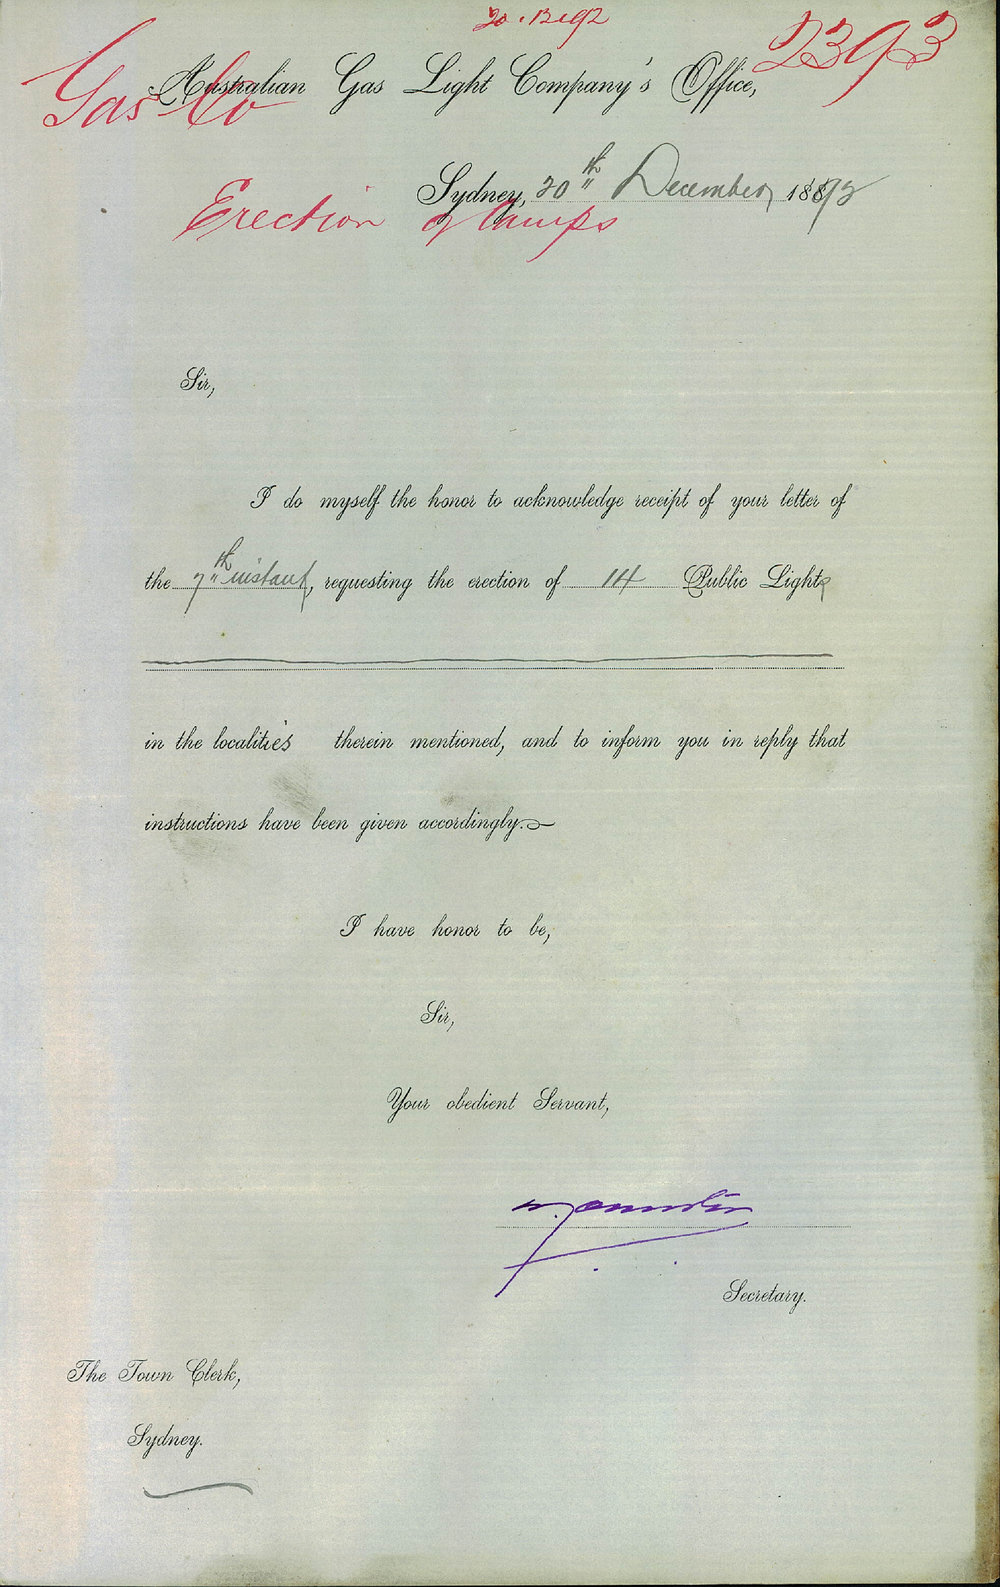 20.12.92
2393
Gas Co
Australian Gas Light Company's Office,
Sydney, 20th December, 1892
Erection of Lamps
Sir,
I do myself the honor to acknowledge receipt of your letter of
the 7th instant, requesting the erection of 14 Public Lights
in the localities therein mentioned, and to inform you in reply that
instructions have been given accordingly.
I have honor to be,
Sir,
Your obedient Servant,
Secretary.
The Town Clerk,
Sydney.